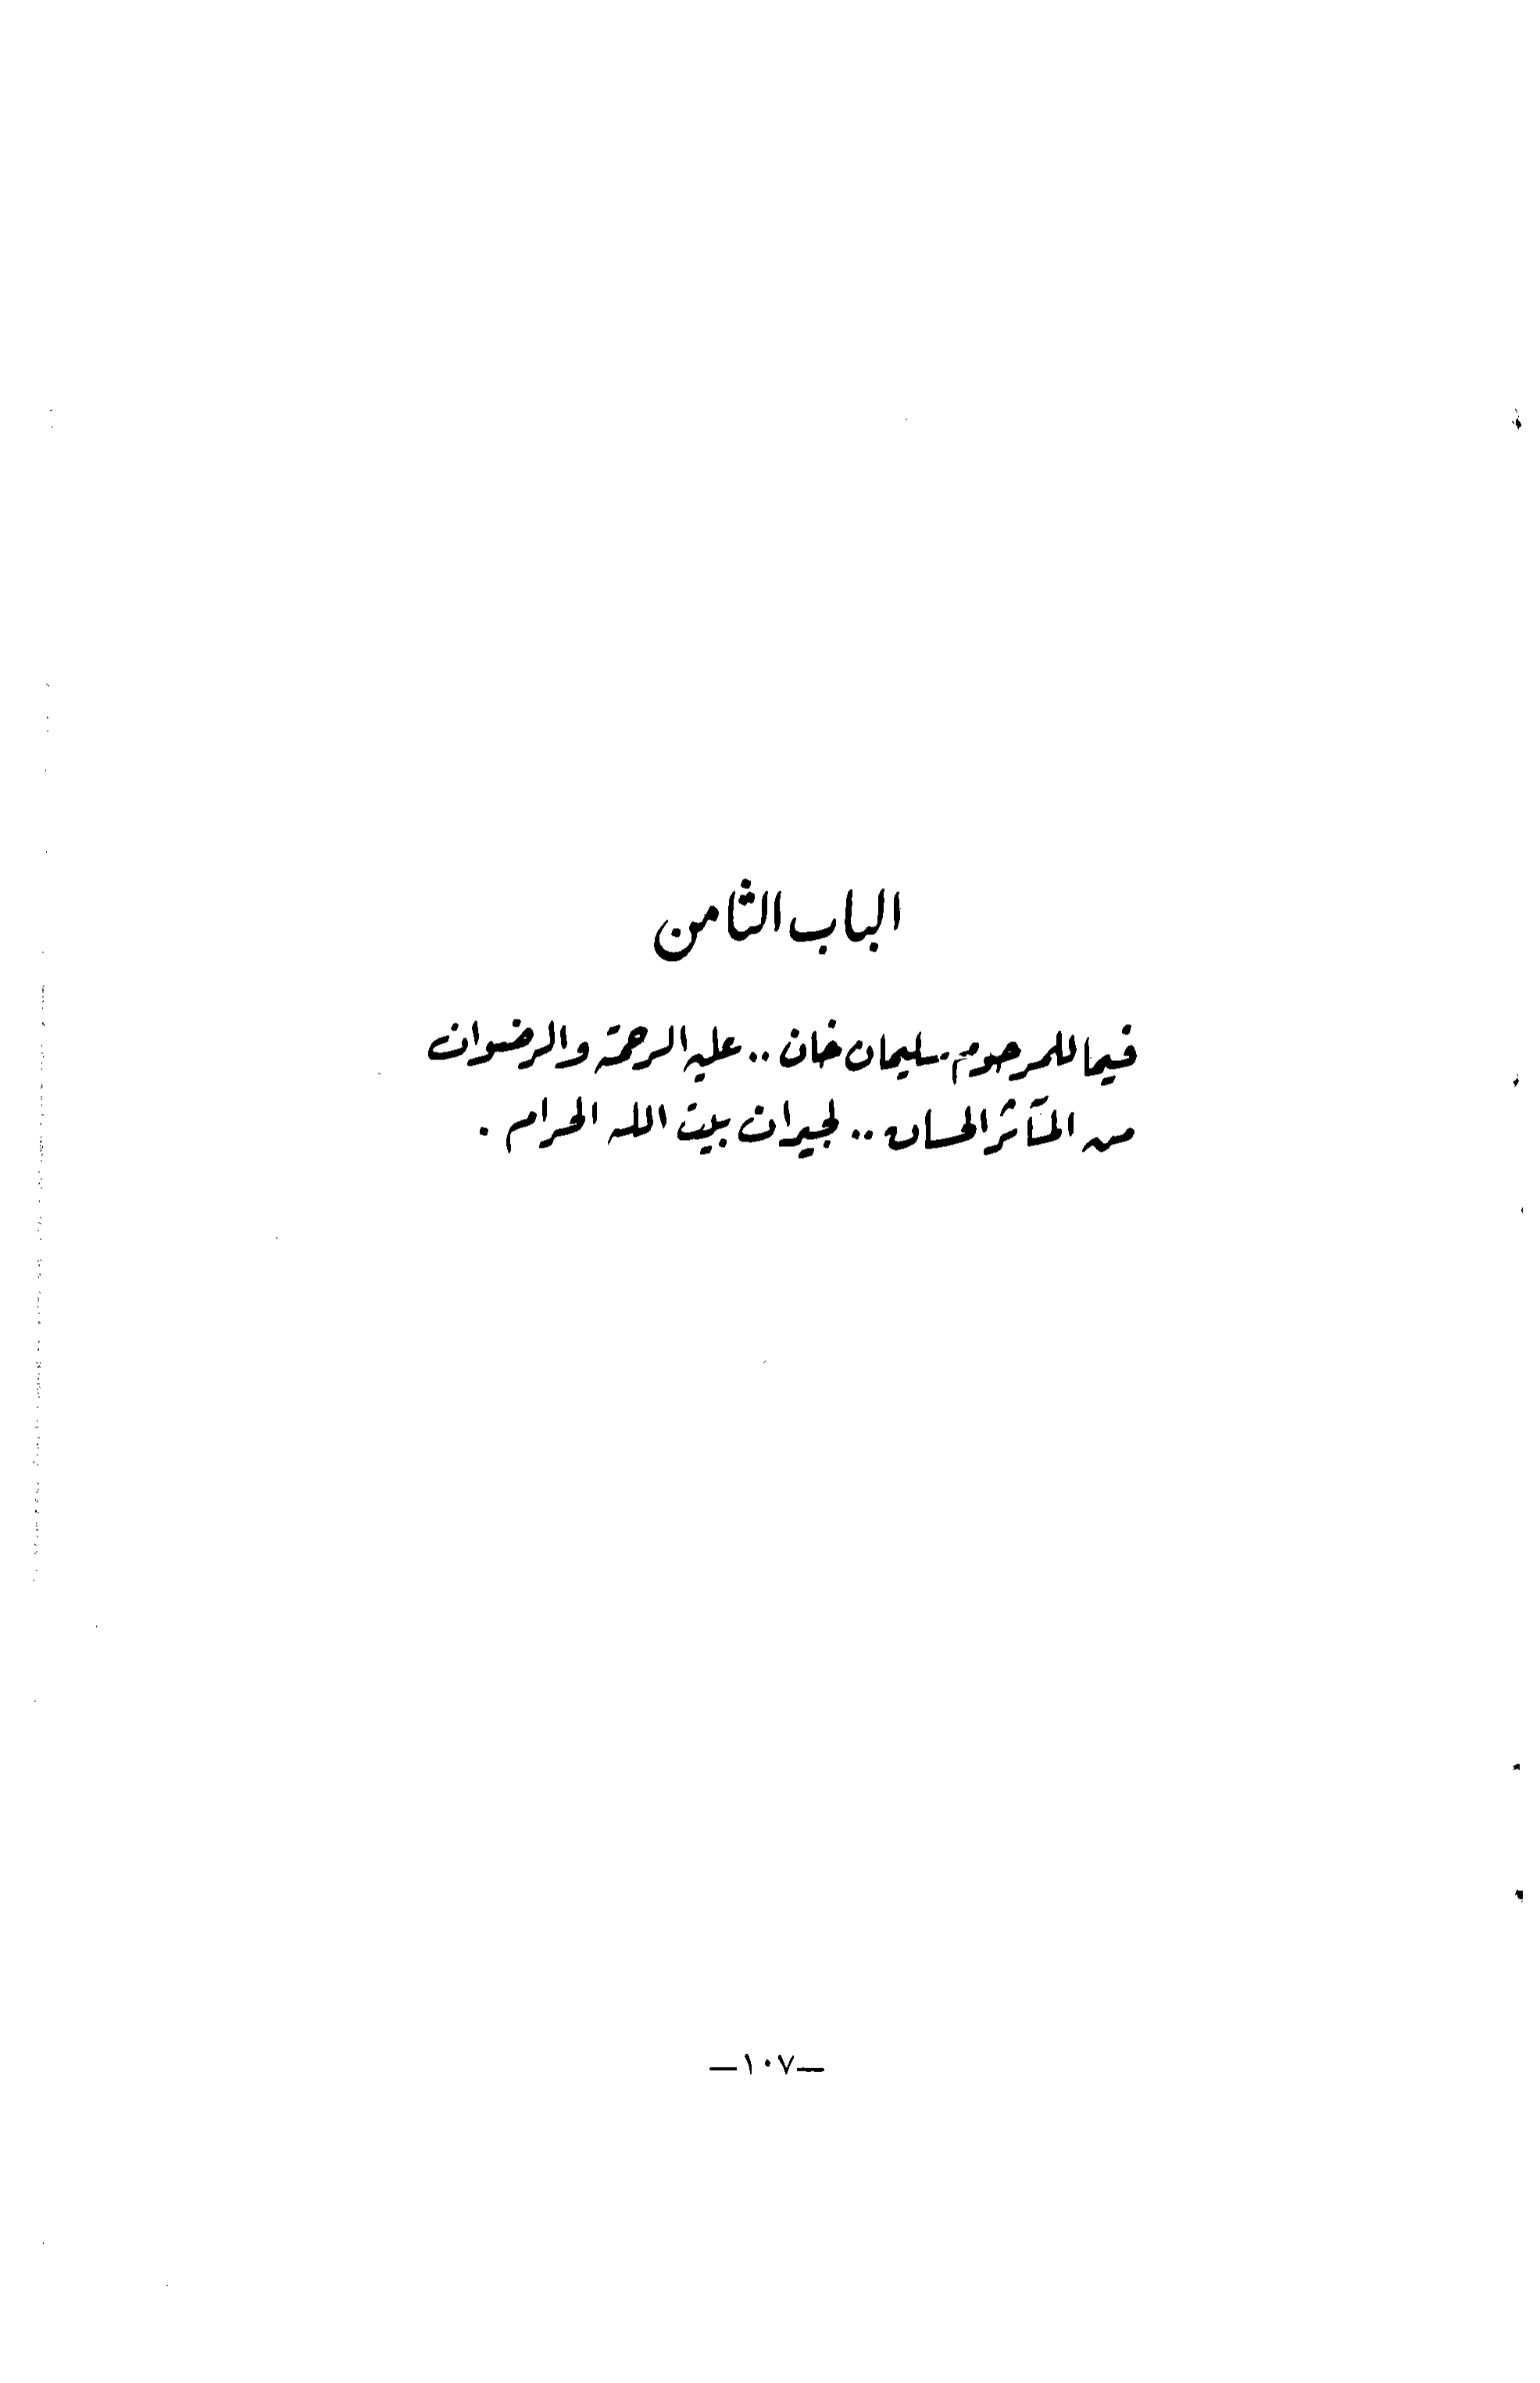 الباب الثامن
فيما للمرحوم سليمان خان .. عليه الرحمة والرضوان
من المآثر الحسان .. لجيران بيت الله الحرام .
—١٠٧—